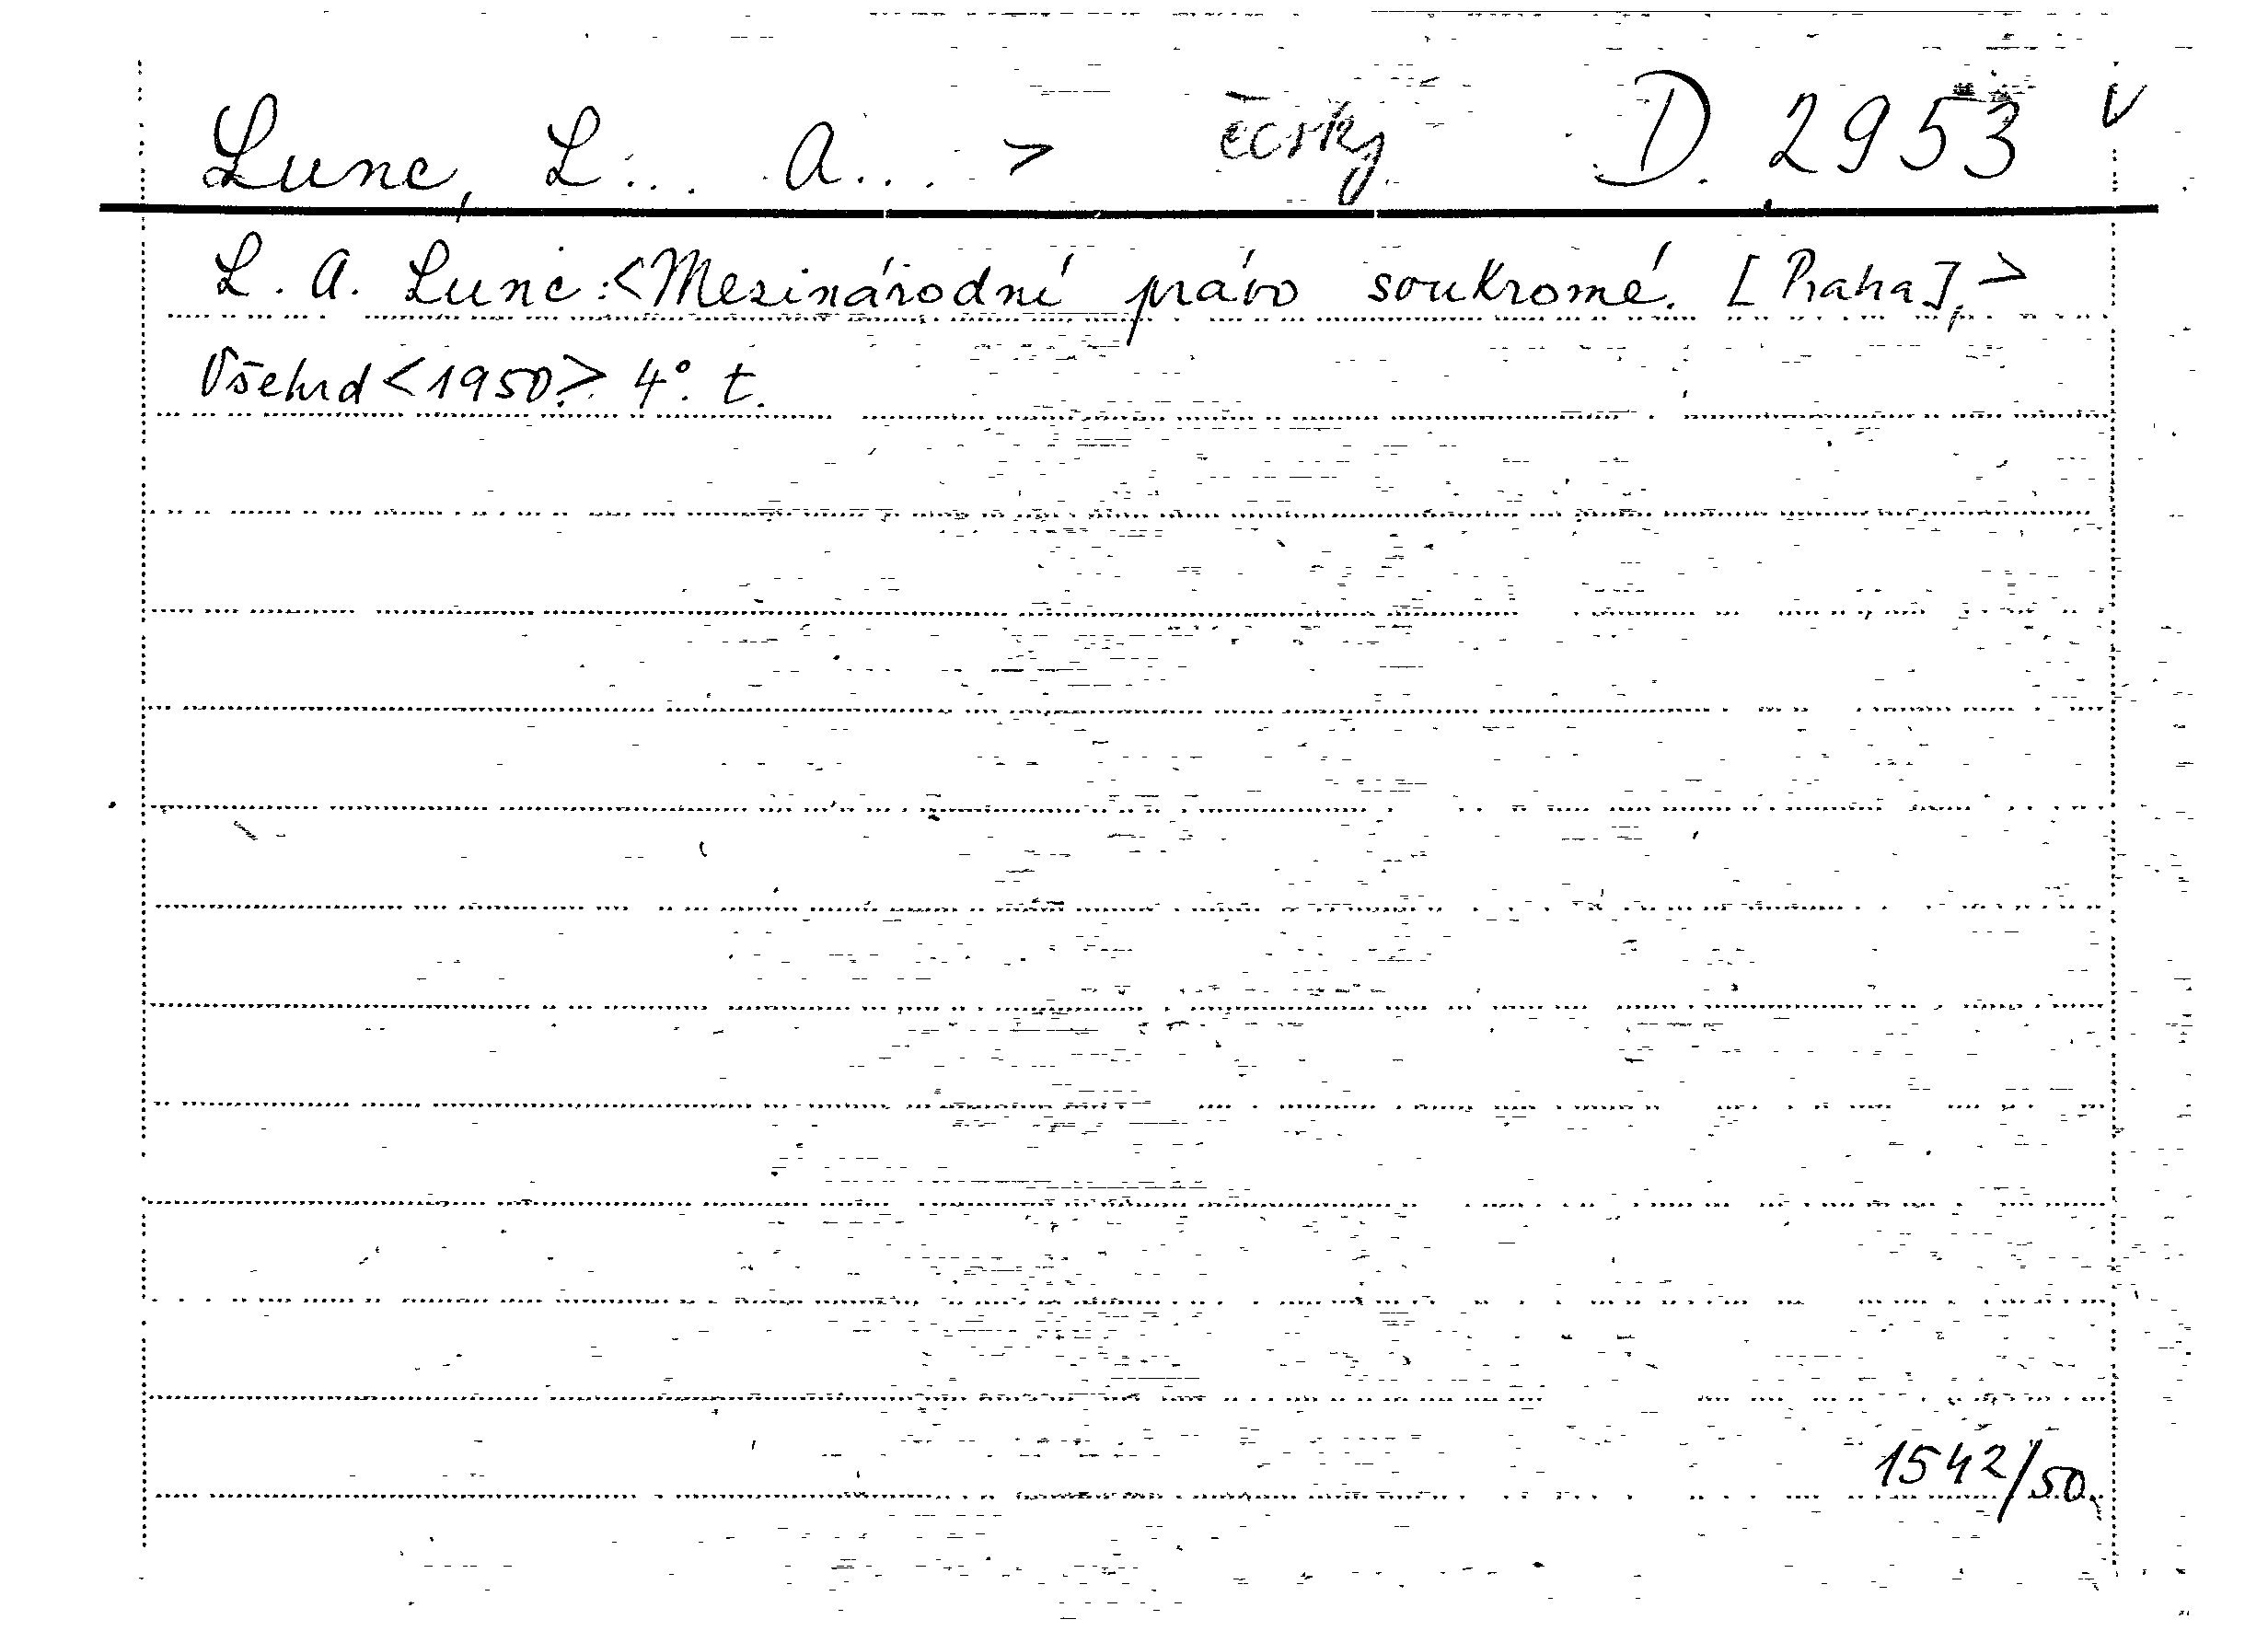 Lunc, L... A... > česky D. 2953 v
L. A. Lunc: <Mezinárodní právo soukromé. [Praha],>
Všehrd <1950>. 4°. t.
1542/50.